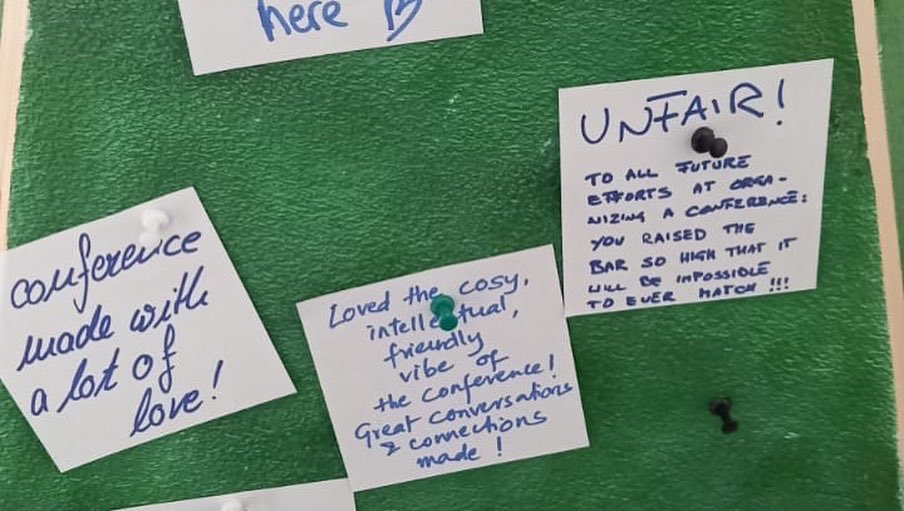 here
conference
made with
a lot of
love!
Loved the cosy,
intellectual,
friendly
vibe of
the conference!
Great conversations
& connections
made!
UNFAIR!
TO ALL FUTURE
EFFORTS AT ORGA-
NIZING A CONFERENCE:
YOU RAISED THE
BAR SO HIGH THAT IT
WILL BE IMPOSSIBLE
TO EVER MATCH!!!